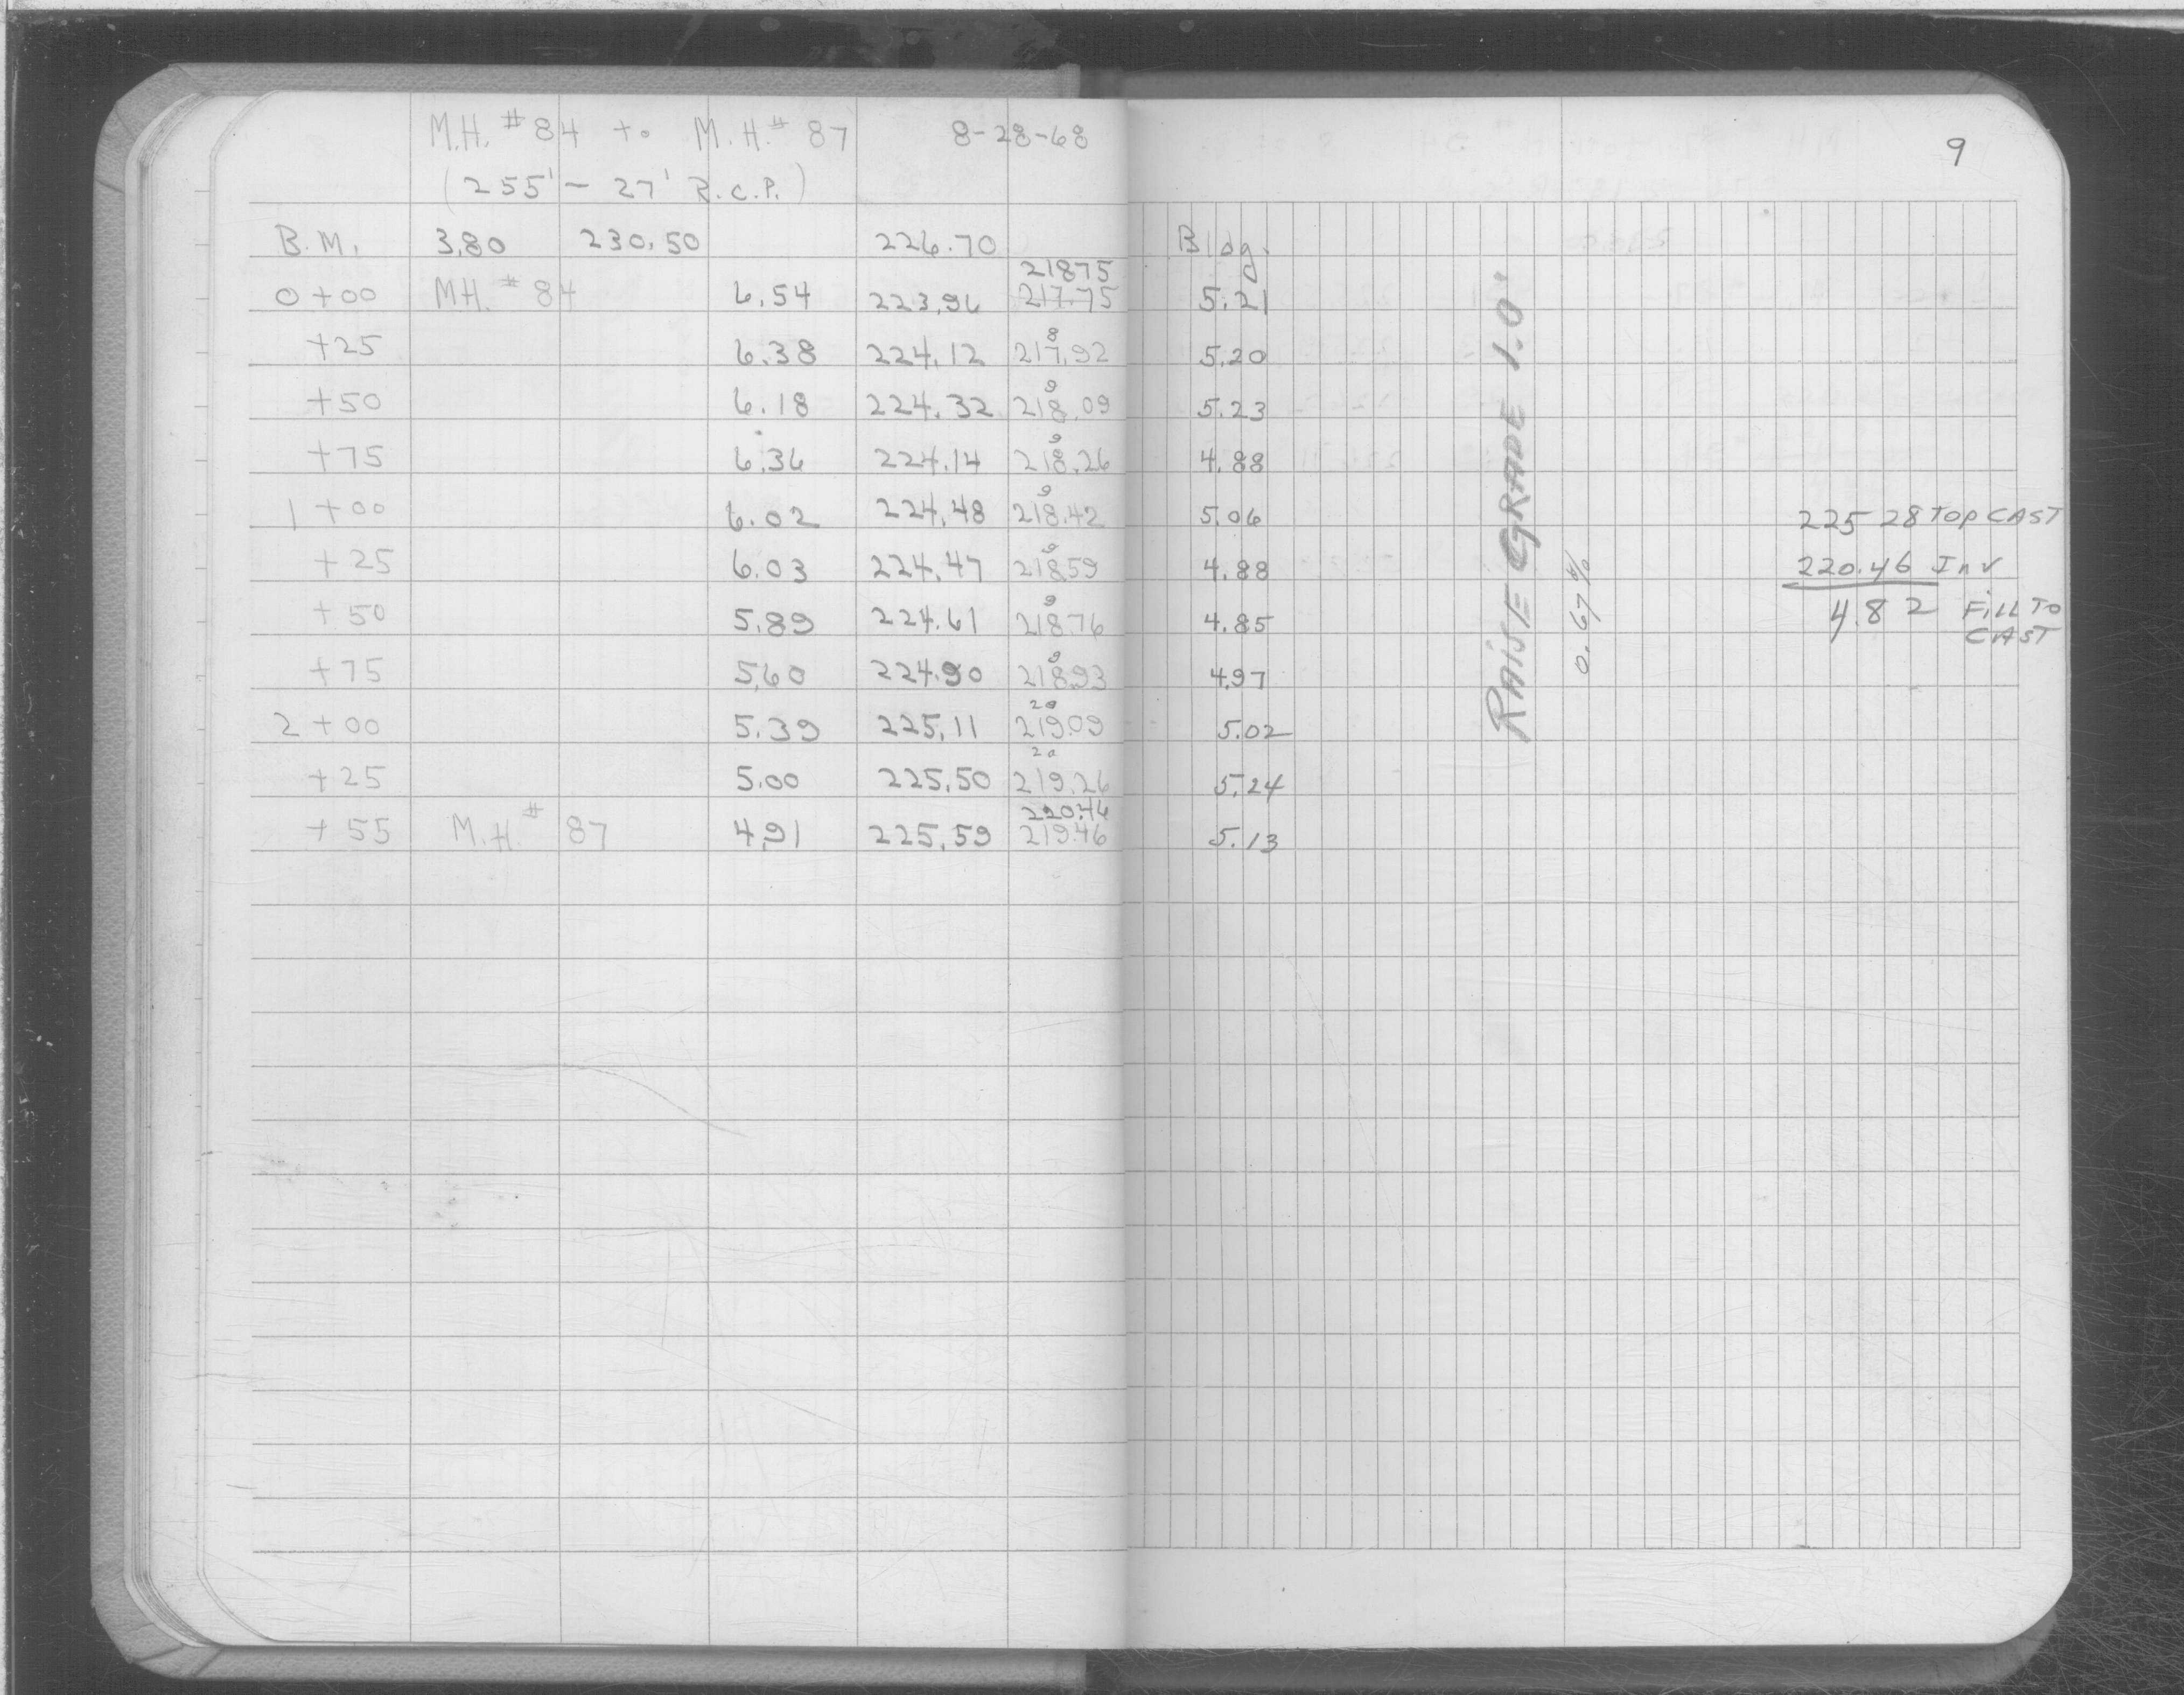 M.H. #84 to M.H.# 87 8-28-68
(255' - 27' R.C.P.)
9
B.M. 3.80 230.50 226.70 Bldg.
21875
0+00 MH. #84 6.54 223.96 217.75 5.21
8
+25 6.38 224.12 217.92 5.20
9
+50 6.18 224.32 218.09 5.23
9
+75 6.36 224.14 218.26 4.88
9
1+00 6.02 224.48 218.42 5.06
9
+25 6.03 224.47 218.59 4.88
9
+50 5.89 224.61 218.76 4.85
9
+75 5.60 224.90 218.93 4.97
20
2+00 5.39 225.11 219.09 5.02
20
+25 5.00 225.50 219.26 5.24
220.46
+55 M.H.# 87 4.91 225.59 219.46 5.13
RAISE GRADE 1.0'
0.67%
225 28 TOP CAST
220.46 Inv
4.82 FILL TO
CAST